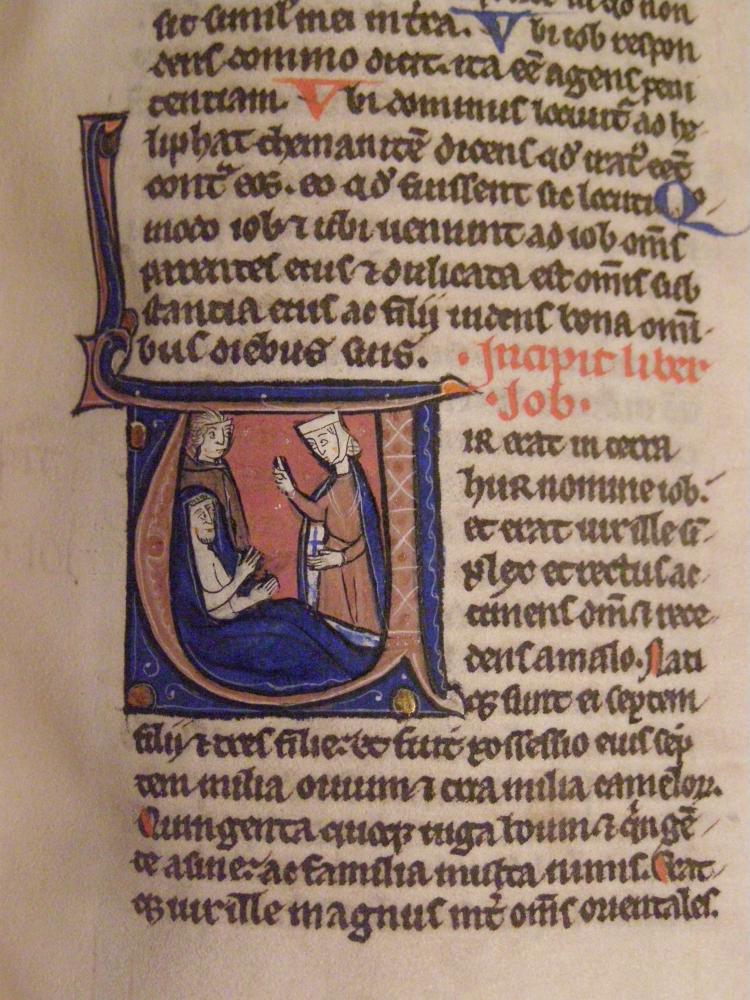 sit similis mei in t̃ra. Vbi iob respon
dens domino dicit. ita eē agens peni
tentiam. Vbi dominus locuit̃ ad he
liphat themanitē dicens qd̛ irat᷒ eēt
cont̃ eos. eo qd̛ fuissent sic locuti. Qo
modo iob ⁊ ubi ueniunt ad iob om̄s
parentes eius ⁊ duplicata est om̄is sub
stantia eius ac filij uidens bona omi
bus diebus suis. Incipit liber
Job.
VIR erat in terra
hus nomine iob.
et erat uir ille sī
plex et rectus ac
timens dm̄ ⁊ rece
dens a malo. Nati
qꝫ sunt ei septem
filij ⁊ tres filie. et fuit possessio eius sep
tem milia ouium ⁊ tria milia cameloꝝ.
Quingenta quoqꝫ iuga boum ⁊ q̇ngē
te asine. ac familia multa nimis. Erat
qꝫ uir ille magnus int̃ om̄s orientales.